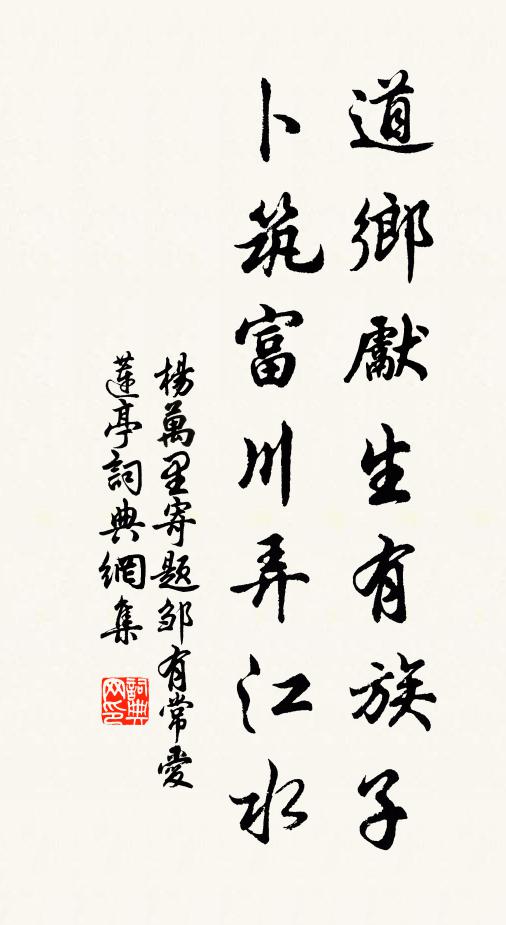 道鄉獻生有族子
卜筑富川弄江水
楊萬里寄題邹有常愛
蓮亭詞典網集
詞典
网印